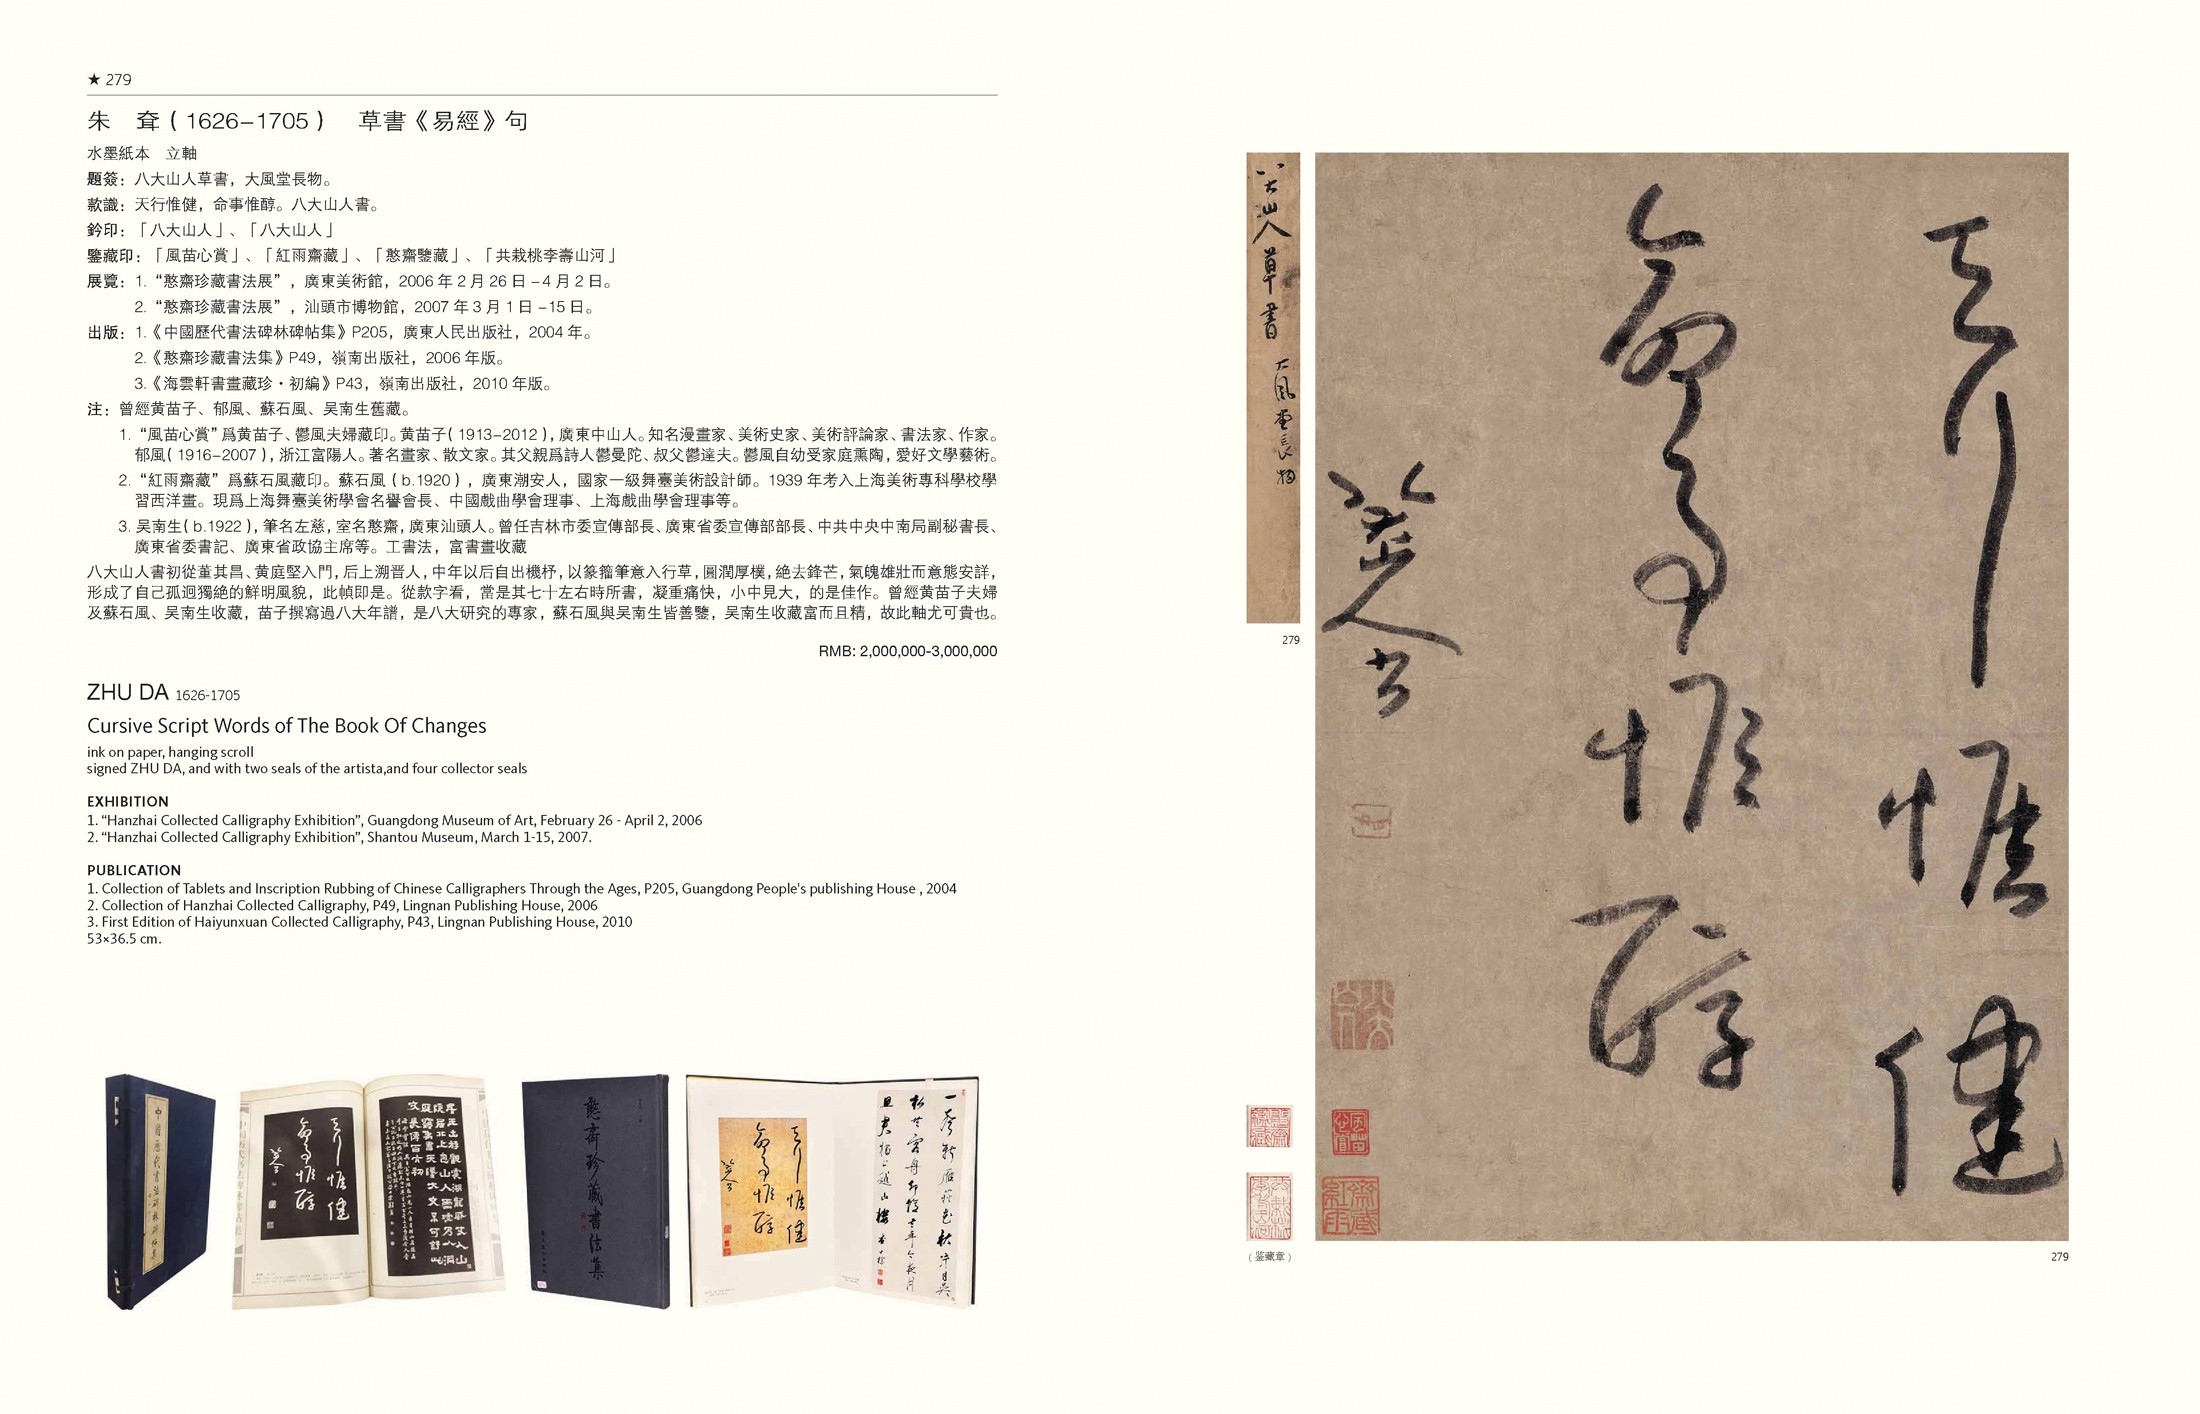 ★ 279
朱　耷（1626–1705）　草書《易經》句
水墨紙本　立軸
題簽：八大山人草書，大風堂長物。
款識：天行惟健，命事惟醇。八大山人書。
鈐印：「八大山人」、「八大山人」
鑒藏印：「風苗心賞」、「紅雨齋藏」、「憨齋鑒藏」、「共栽桃李壽山河」
展覽：1.“憨齋珍藏書法展”，廣東美術館，2006 年 2 月 26 日 –4 月 2 日。
2.“憨齋珍藏書法展”，汕頭市博物館，2007 年 3 月 1 日 –15 日。
出版：1.《中國歷代書法碑林碑帖集》P205，廣東人民出版社，2004 年。
2.《憨齋珍藏書法集》P49，嶺南出版社，2006 年版。
3.《海雲軒書畫藏珍·初編》P43，嶺南出版社，2010 年版。
注：曾經黄苗子、郁風、蘇石風、吴南生舊藏。
1.“風苗心賞”爲黄苗子、鬱風夫婦藏印。黄苗子（1913–2012），廣東中山人。知名漫畫家、美術史家、美術評論家、書法家、作家。
郁風（1916–2007），浙江富陽人。著名畫家、散文家。其父親爲詩人鬱曼陀、叔父鬱達夫。鬱風自幼受家庭熏陶，愛好文學藝術。
2.“紅雨齋藏”爲蘇石風藏印。蘇石風（b.1920），廣東潮安人，國家一級舞臺美術設計師。1939 年考入上海美術專科學校學
習西洋畫。現爲上海舞臺美術學會名譽會長、中國戲曲學會理事、上海戲曲學會理事等。
3. 吴南生（b.1922），筆名左慈，室名憨齋，廣東汕頭人。曾任吉林市委宣傳部長、廣東省委宣傳部部長、中共中央中南局副秘書長、
廣東省委書記、廣東省政協主席等。工書法，富書畫收藏
八大山人書初從董其昌、黄庭堅入門，后上溯晋人，中年以后自出機杼，以篆籀筆意入行草，圓潤厚樸，絶去鋒芒，氣魄雄壯而意態安詳，
形成了自己孤迥獨絶的鮮明風貌，此幀即是。從款字看，當是其七十左右時所書，凝重痛快，小中見大，的是佳作。曾經黄苗子夫婦
及蘇石風、吴南生收藏，苗子撰寫過八大年譜，是八大研究的專家，蘇石風與吴南生皆善鑒，吴南生收藏富而且精，故此軸尤可貴也。
RMB: 2,000,000-3,000,000
ZHU DA 1626-1705
Cursive Script Words of The Book Of Changes
ink on paper, hanging scroll
signed ZHU DA, and with two seals of the artista,and four collector seals
EXHIBITION
1. “Hanzhai Collected Calligraphy Exhibition”, Guangdong Museum of Art, February 26 - April 2, 2006
2. “Hanzhai Collected Calligraphy Exhibition”, Shantou Museum, March 1-15, 2007.
PUBLICATION
1. Collection of Tablets and Inscription Rubbing of Chinese Calligraphers Through the Ages, P205, Guangdong People's publishing House , 2004
2. Collection of Hanzhai Collected Calligraphy, P49, Lingnan Publishing House, 2006
3. First Edition of Haiyunxuan Collected Calligraphy, P43, Lingnan Publishing House, 2010
53×36.5 cm.
中國歷代書法碑林碑帖集
天行惟健
命事惟醇
八大山人書
憨齋珍藏書法集
天行惟健
命事惟醇
八大山人書
八大山人草書
大風堂長物
279
天行惟健
命事惟醇
八大山人書
八大山人
風苗心賞
紅雨齋藏
憨齋鑒藏
共栽桃李壽山河
（鉴藏章）
279